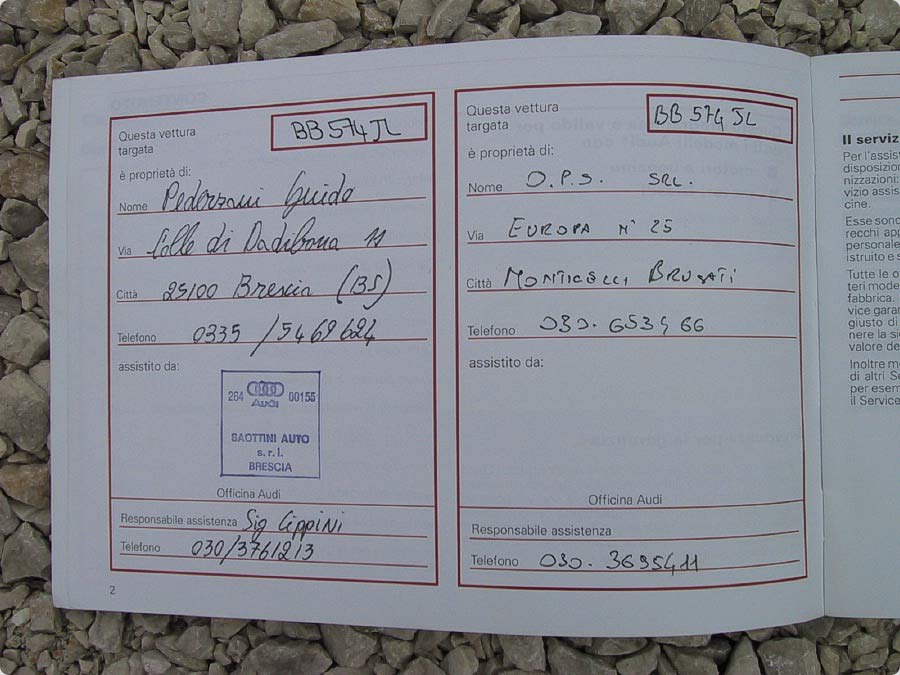 Questa vettura
targata
BB 574 JL
è proprietà di:
Nome Pederzani Guido
Via Colle di Dadibona 11
Città 25100 Brescia (BS)
Telefono 0335 / 5469624
assistito da:
264 00155
Audi
SAOTTINI AUTO
s.r.l.
BRESCIA
Officina Audi
Responsabile assistenza Sig Cippini
Telefono 030/3761213
2
Questa vettura
targata
BB 574 JL
è proprietà di:
Nome O.P.S. SRL.
Via EUROPA N° 25
Città MONTICELLI BRUSATI
Telefono 030. 6534 66
assistito da:
Officina Audi
Responsabile assistenza
Telefono 030. 3695411
Il serviz
Per l'assist
disposizion
nizzazioni:
vizio assis
cine.
Esse sono
recchi app
personale
istruito e s
Tutte le o
teri mode
fabbrica.
vice garan
giusto di
nere la si
valore de
Inoltre m
di altri Se
per esem
il Service